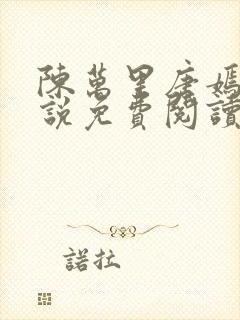 陳萬里唐嫣
說免費閱讀
諾拉